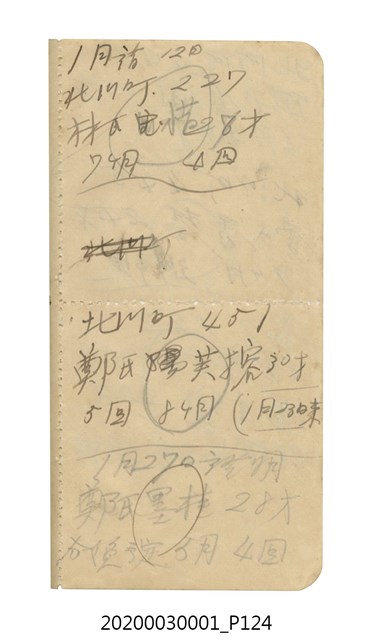 1月請 12日
北川町. 227
林氏 惜 28才
7ヶ月 4回
北川町
北川町 451
鄭氏陽芙蓉30才
5回 8ヶ月 (1月23日来
1月27日 明
鄭氏墨 28才
5月 4回
20200030001_P124